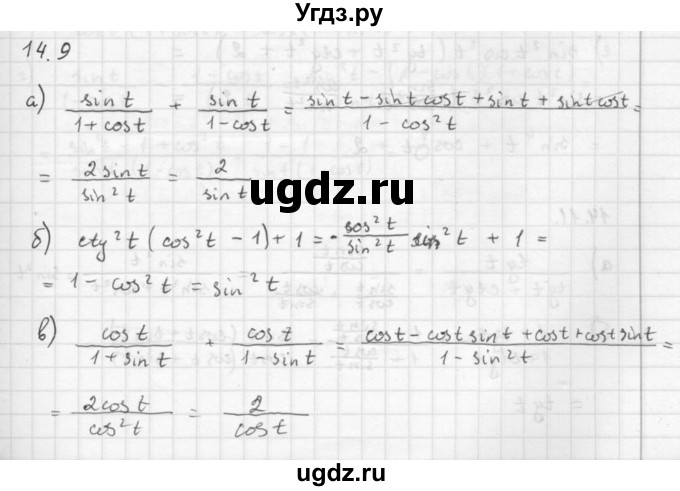 Угдз.ру
14.9
а) sin t / (1 + cos t) + sin t / (1 - cos t) = (sin t - sin t cos t + sin t + sin t cos t) / (1 - cos² t) =
= 2 sin t / sin² t = 2 / sin t
ugdz.ru
б) ctg² t (cos² t - 1) + 1 = - cos² t / sin² t sin² t + 1 =
= 1 - cos² t = sin² t
в) cos t / (1 + sin t) + cos t / (1 - sin t) = (cos t - cos t sin t + cos t + cos t sin t) / (1 - sin² t) =
= 2 cos t / cos² t = 2 / cos t
ugdz.ru